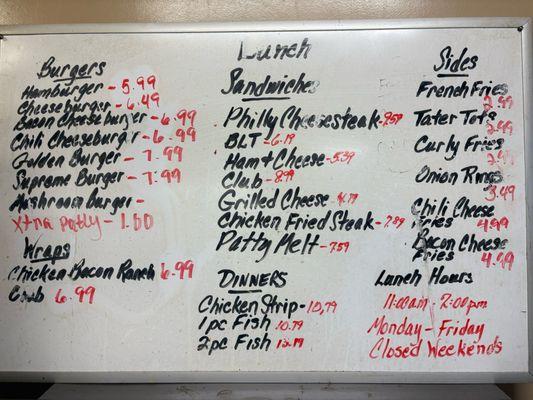 Lunch
Burgers
Hamburger - 5.99
Cheeseburger - 6.49
Bacon Cheeseburger - 6.99
Chili Cheeseburger - 6.99
Golden Burger - 7.99
Supreme Burger - 7.99
Mushroom Burger -
Xtra patty - 1.00
Wraps
Chicken Bacon Ranch 6.99
Club 6.99
Sandwiches
Philly Cheesesteak - 9.59
BLT - 6.19
Ham + Cheese - 5.39
Club - 8.99
Grilled Cheese - 4.79
Chicken Fried Steak - 7.89
Patty Melt - 7.59
DINNERS
Chicken Strip - 10.79
1 pc Fish 10.79
2 pc Fish
Sides
French Fries
2.99
Tater Tots
2.99
Curly Fries
2.99
Onion Rings
3.49
Chili Cheese
Fries 4.99
Bacon Cheese
Fries 4.99
Lunch Hours
11:00am - 2:00pm
Monday - Friday
Closed Weekends